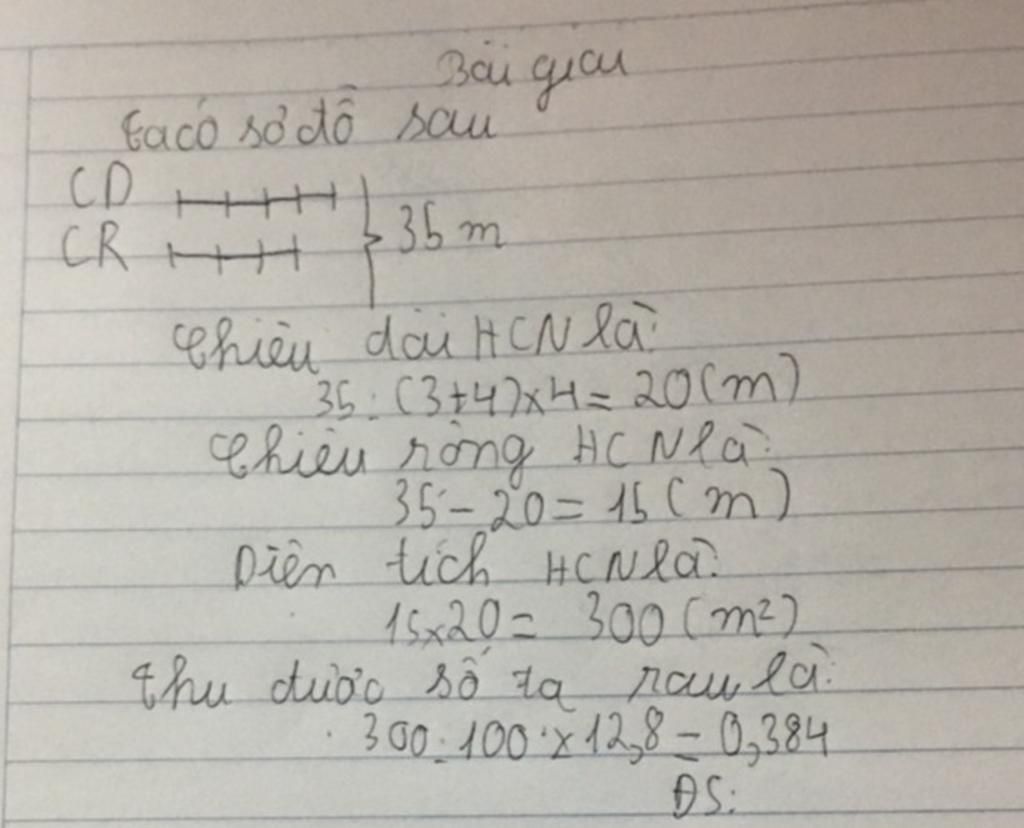 Bài giải
ta có sơ đồ sau
CD
CR
35 m
Chiều dài HCN là:
35 : (3+4) x 4 = 20 (m)
Chiều rộng HCN là:
35 - 20 = 15 (m)
Diện tích HCN là:
15 x 20 = 300 (m²)
thu được số tạ rau là:
300 : 100 x 12,8 = 0,384
ĐS: